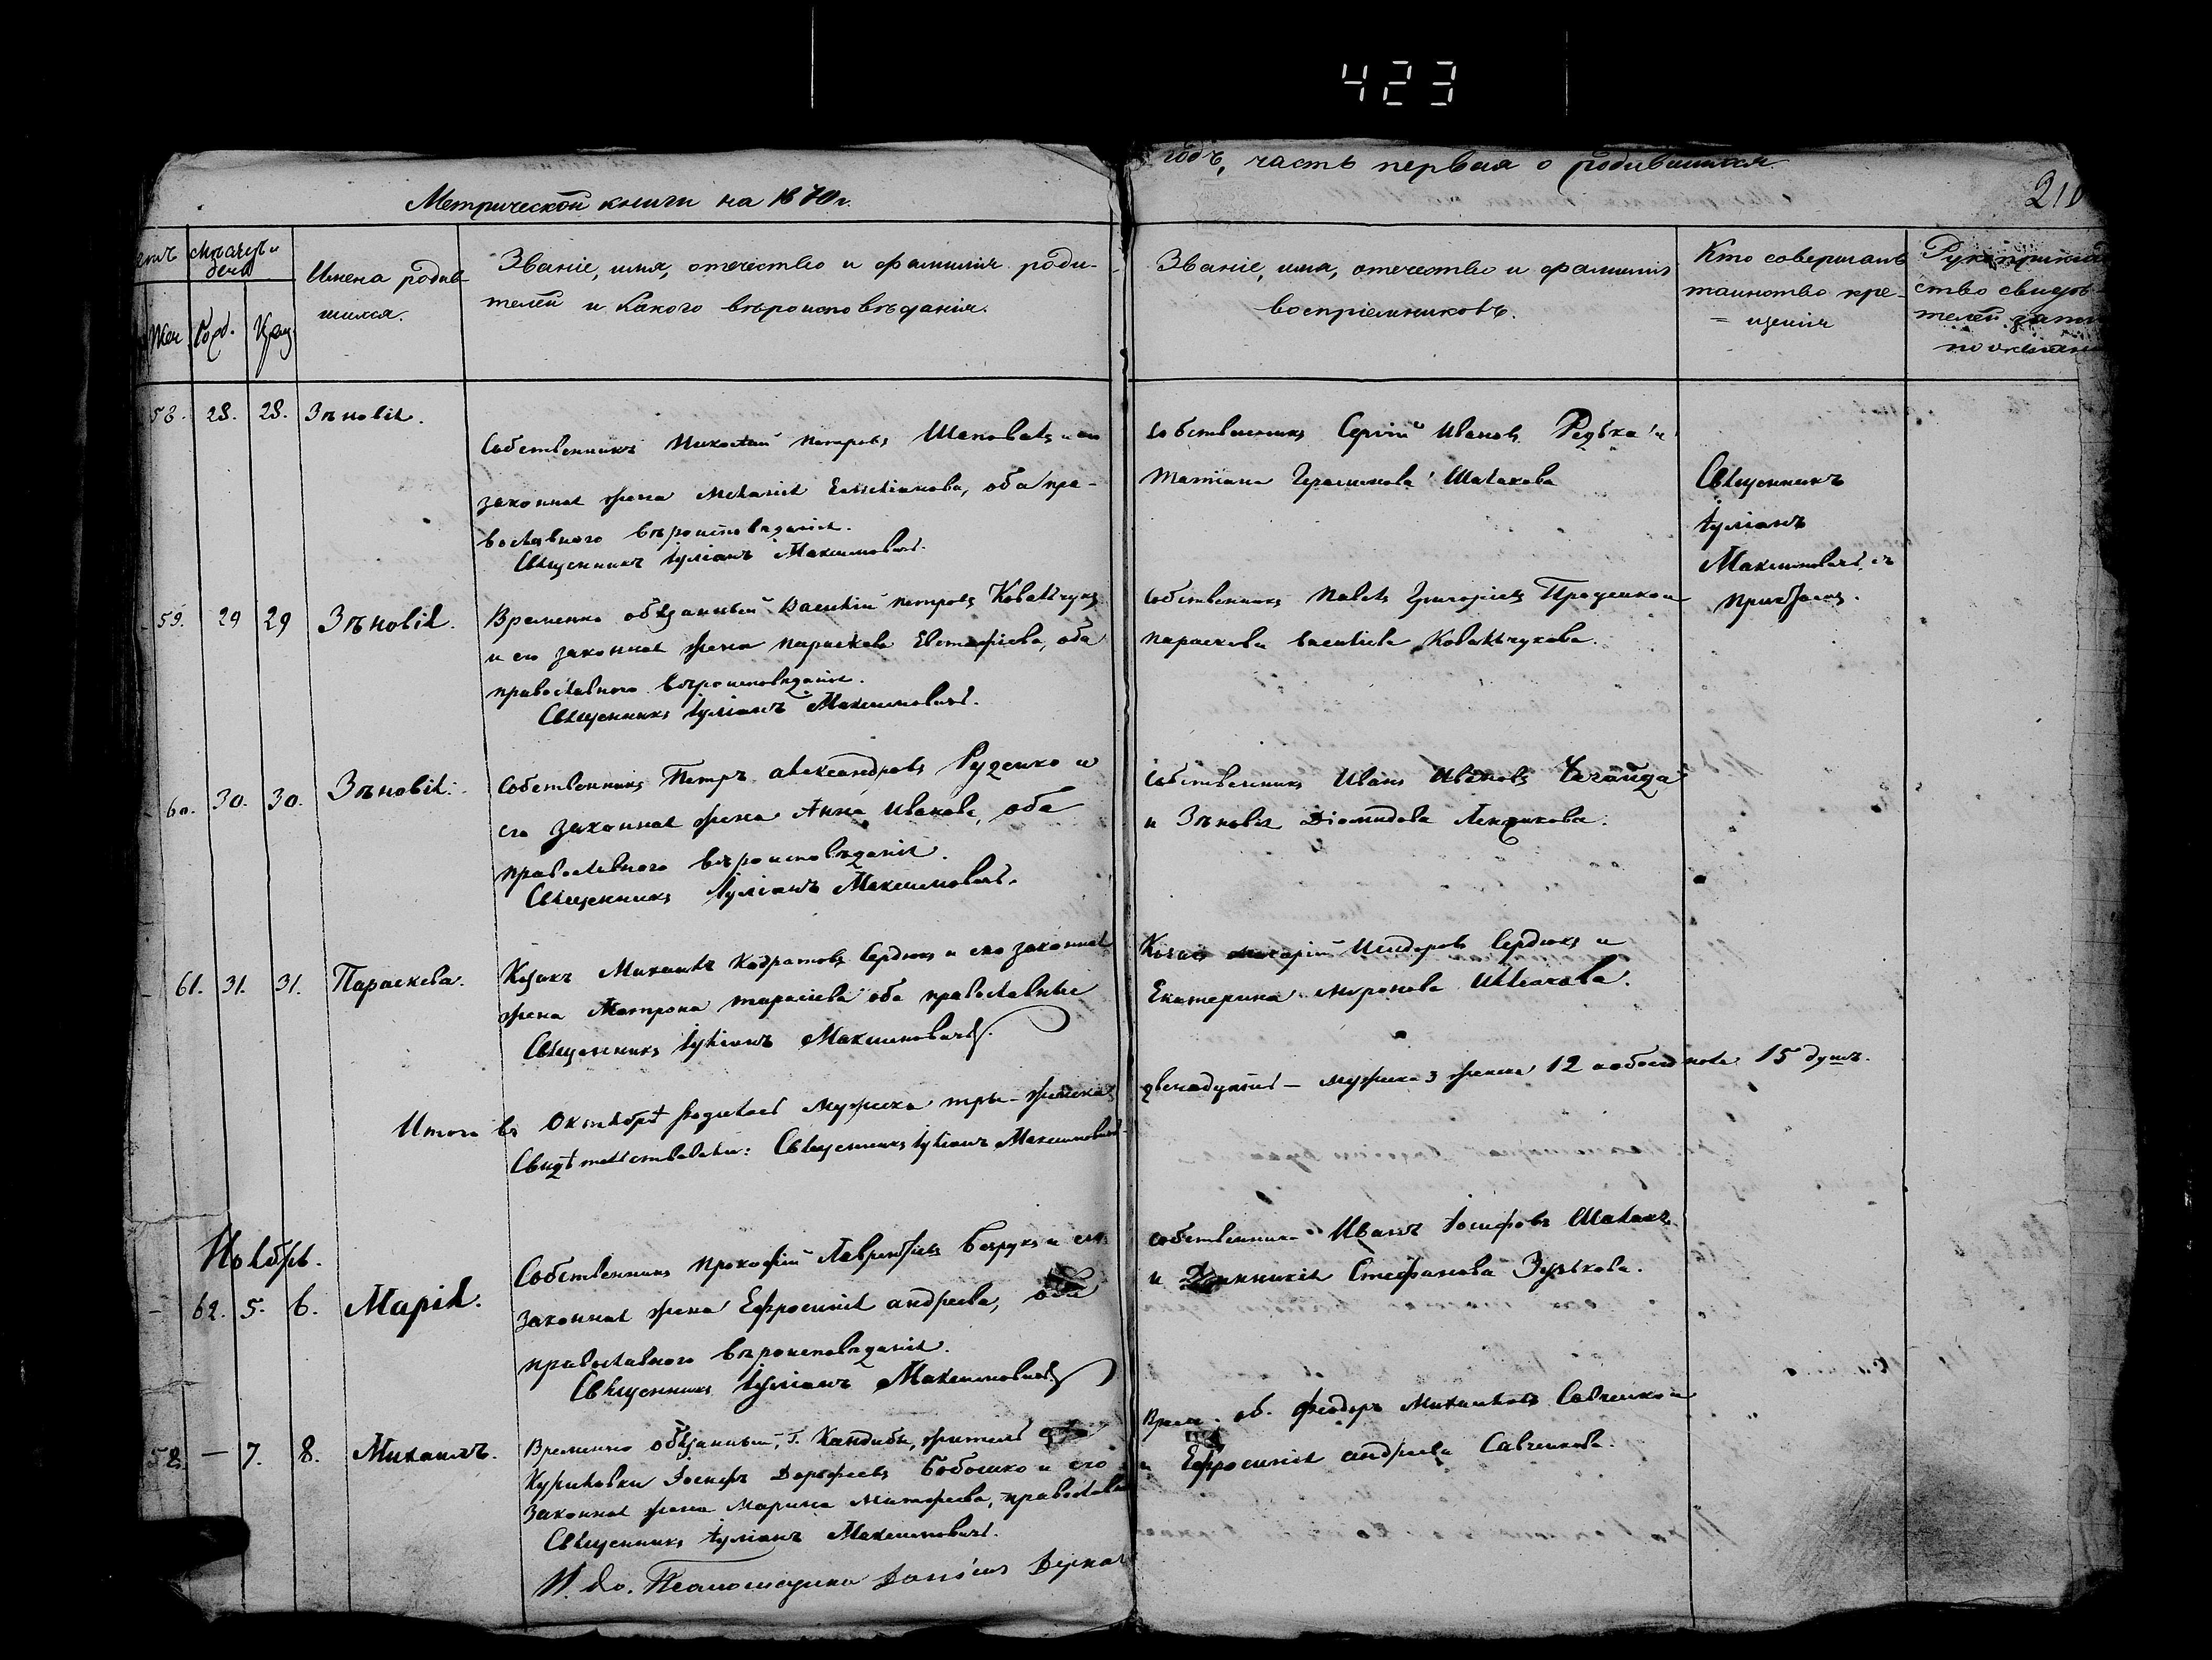 423
Метрической книги на 1870 г.
годъ, часть первая о родившихся
210
Мѣсяцъ и день
Жен. Род. Крещ.
Имена родив-
шихся.
Званіе, имя, отечество и фамилія роди-
телей и какого вѣроисповѣданія.
Званіе, имя, отечество и фамилія
воспріемниковъ.
Кто совершалъ
таинство кре-
щенія
Рукоприклад
ство свидѣ
телей запи
по желан
58. 28. 28. Зѣновія.
Собственникъ Николай Петровъ Шаповалъ и его
законная жена Меланія Емиліанова, оба пра-
вославного вѣроисповѣданія.
Священникъ Іуліанъ Максимовичъ.
Собственникъ Сергій Ивановъ Редька и
Татіана Герасимова Шалахова
Священникъ
Іуліанъ
Максимовичъ съ
причтомъ.
59. 29 29 Зѣновія.
Временно обязанный Василій Петровъ Ковальчукъ
и его законная жена Параскева Евстафіева, оба
православного вѣроисповѣданія.
Священникъ Іуліанъ Максимовичъ.
Собственникъ Павелъ Григоріевъ Проценко и
Параскева Василіева Ковальчукова.
60. 30. 30. Зѣновія.
Собственникъ Петръ Александровъ Руденко и
его законная жена Анна Иванова, оба
православного вѣроисповѣданія.
Священникъ Іуліанъ Максимовичъ.
Собственникъ Иванъ Ивановъ Чагайда
и Зѣновія Діомидова
61. 31. 31. Параскева.
Козакъ Михаилъ Кодратовъ Сердюкъ и его законная
жена Матрона Тарасіева оба православные
Священникъ Іуліанъ Максимовичъ.
Козакъ Макарій Исидоровъ Сердюкъ и
Екатерина Миронова
Итого въ Октябрѣ родилось мужеска три - женска
двенадцять - мужеска 3 женска 12 а обоего пола 15 душъ.
Свидѣтельствовали: Священникъ Іуліанъ Максимовичъ
Ноябрь.
62. 5. 6. Марія.
Собственникъ Прокофій Лаврентіевъ Безрукъ и его
законная жена Ефросинія Андреева, оба
православного вѣроисповѣданія.
Священникъ Іуліанъ Максимовичъ
Собственникъ Иванъ Іосифовъ Шалахъ
и Домникія Стефанова Зузькова.
58. — 7. 8. Михаилъ.
Временно обязанный, Г. Кандибы, житель
Куриловки Іосифъ Дорофеевъ Бобошко и его
законная жена Марина Матфеева, православ
Священникъ Іуліанъ Максимовичъ.
Врем. об. Феодоръ Михаиловъ Савченко и
и Ефросинія Андреева Савченкова.
И. до. Псаломщика